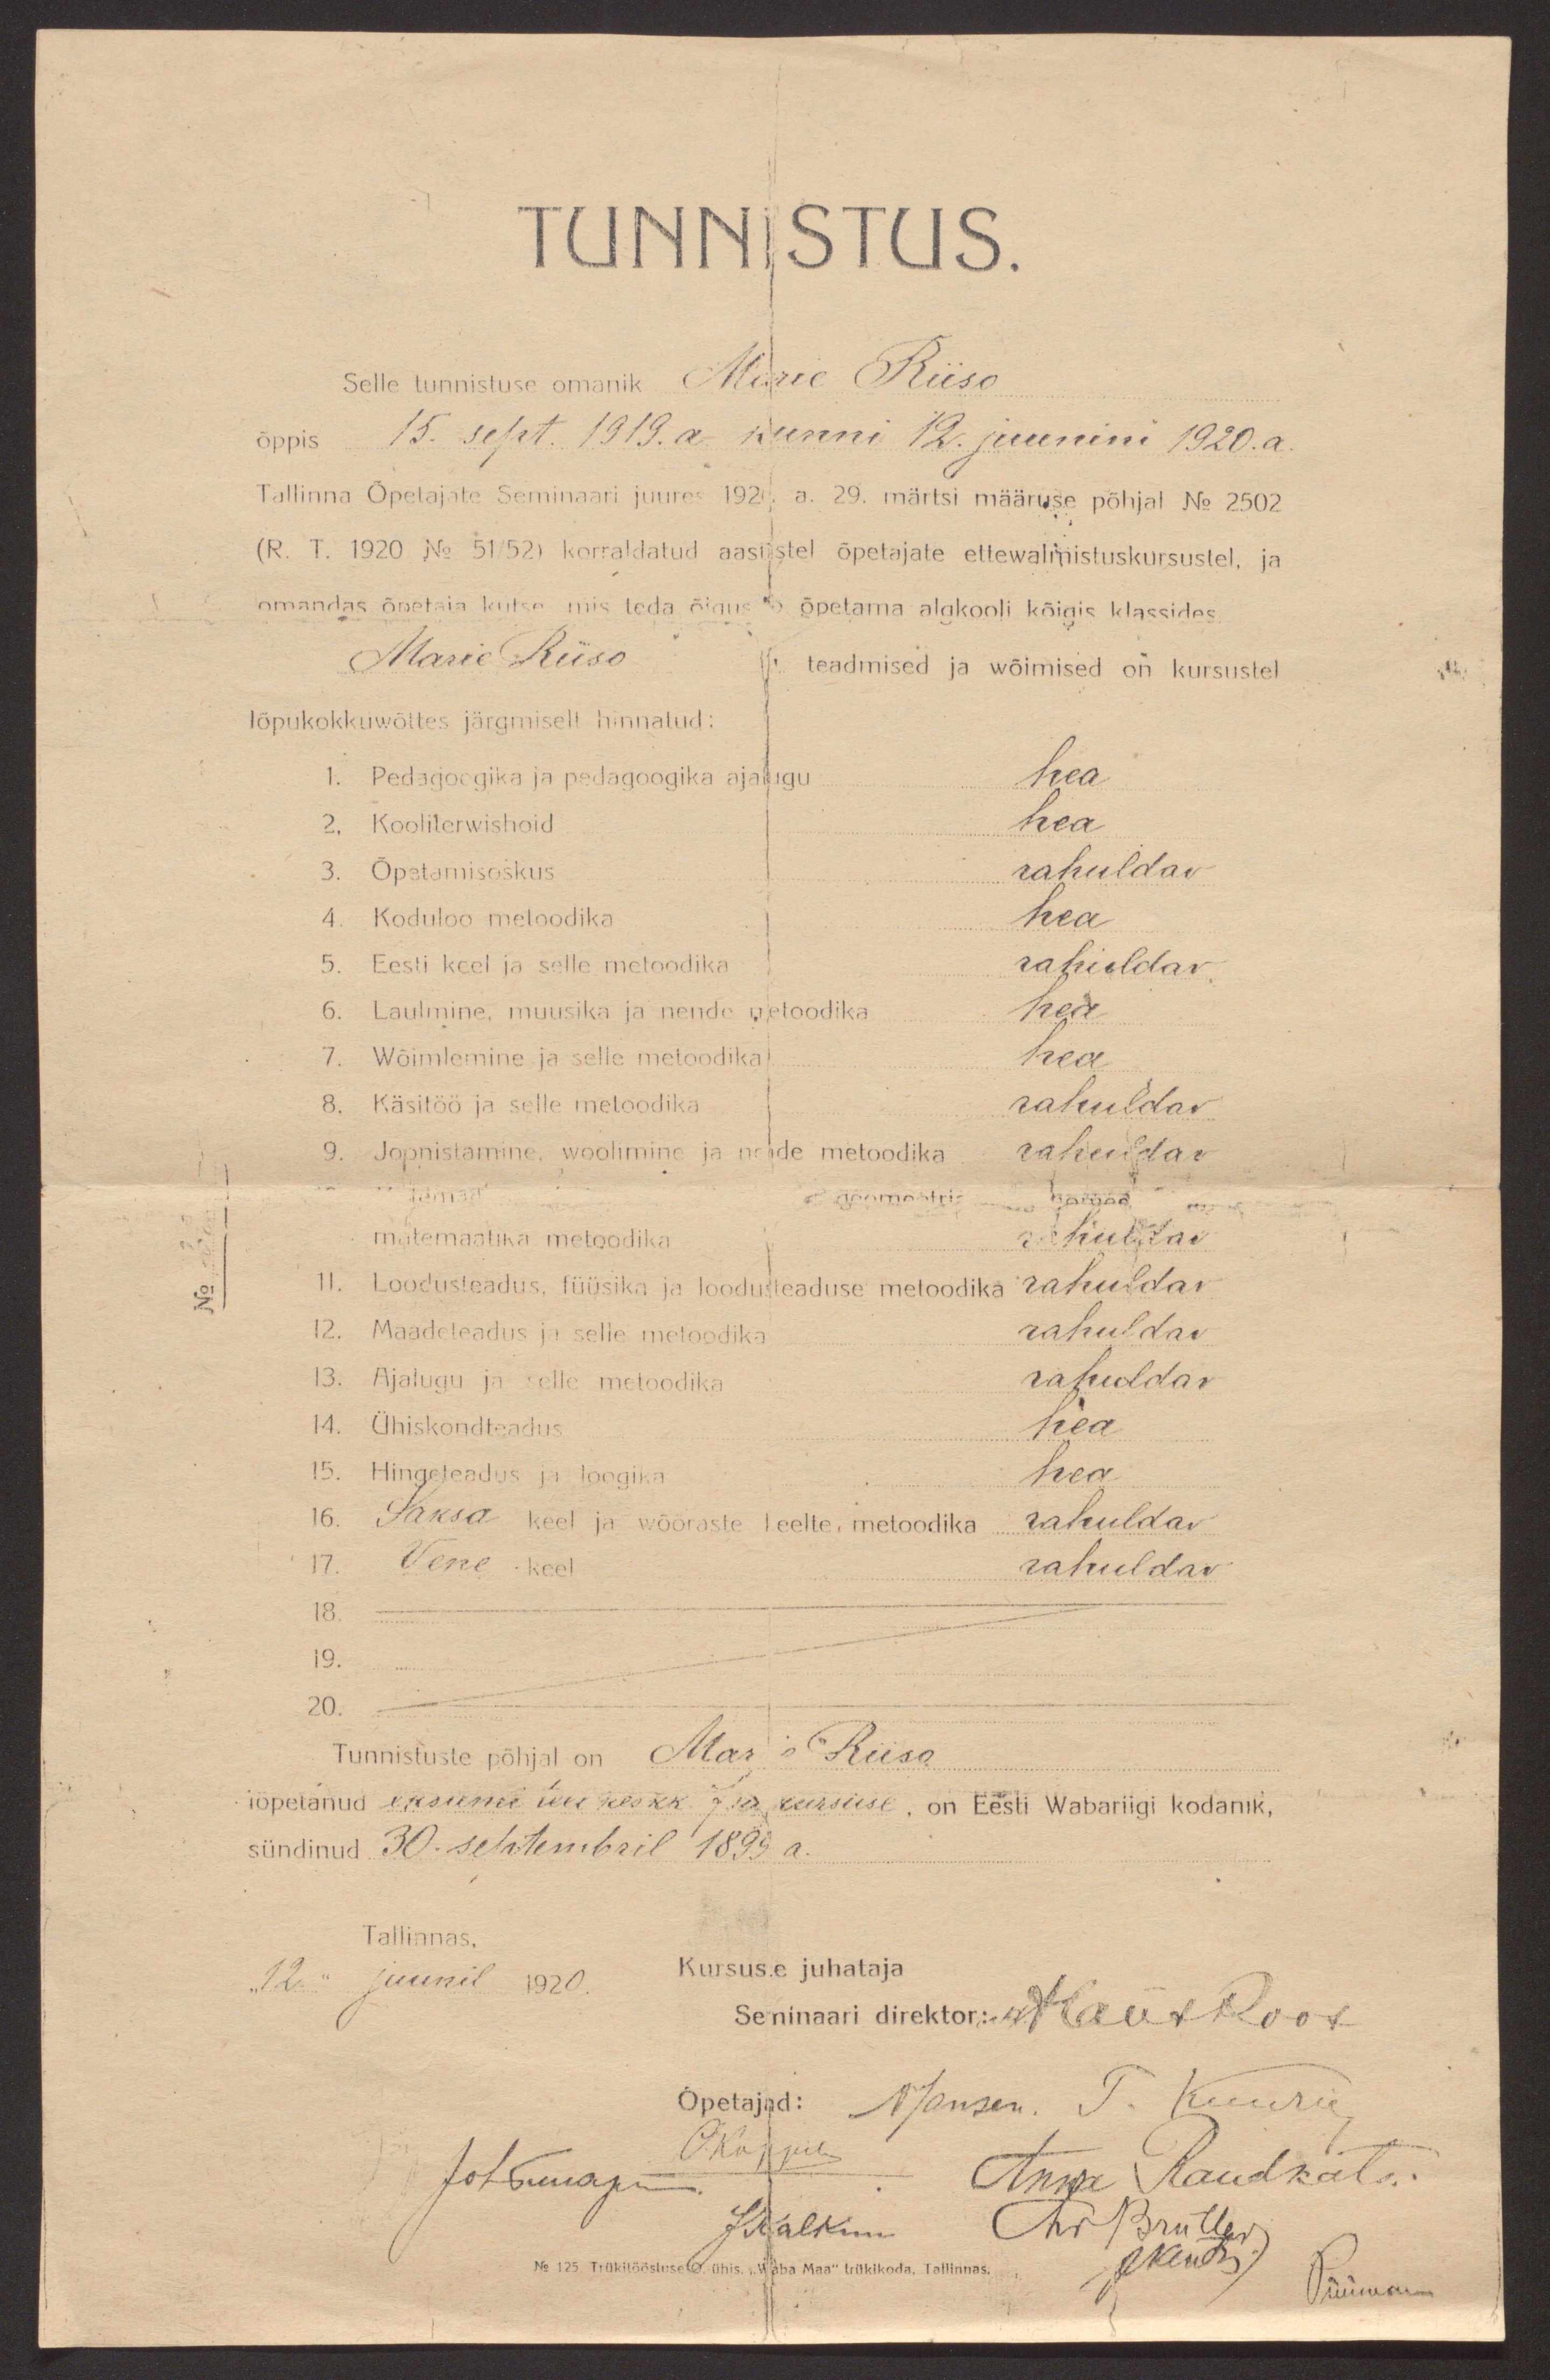 TUNNISTUS.
Selle tunnistuse omanik Marie Riiso
õppis 15. sept. 1919. a kunni 12. juunini 1920. a.
Tallinna Õpetajate Seminaari juures 1920. a. 29. märtsi määruse põhjal № 2502
(R. T. 1920 № 51/52) korraldatud aastastel õpetajate ettewalmistuskursustel, ja
omandas õpetaja kutse mis teda õigustab õpetama algkooli kõigis klassides.
Marie Riiso teadmised ja wõimised on kursustel
lõpukokkuwõttes järgmiselt hinnatud:
1. Pedagoogika ja pedagoogika ajalugu hea
2. Kooliterwishoid hea
3. Õpetamisoskus rahuldav
4. Koduloo metoodika hea
5. Eesti keel ja selle metoodika rahuldav
6. Laulmine, muusika ja nende metoodika hea
7. Wõimlemine ja selle metoodika hea
8. Käsitöö ja selle metoodika rahuldav
9. Joonistamine, woolimine ja nende metoodika rahuldav
geomeetria
matemaatika metoodika rahuldav
11. Loodusteadus, füüsika ja loodusteaduse metoodika rahuldav
12. Maadeteadus ja selle metoodika rahuldav
13. Ajalugu ja selle metoodika rahuldav
14. Ühiskondteadus hea
15. Hingeteadus ja loogika hea
16. Saksa keel ja wõõraste keelte metoodika rahuldav
17. Vene keel rahuldav
18.
19.
20.
№
Tunnistuste põhjal on Marie Riiso
lõpetanud kursuse, on Eesti Wabariigi kodanik,
sündinud 30. septembril 1899 a.
Tallinnas,
"12." juunil 1920.
Kursuse juhataja
Seminaari direktor:
Õpetajad: Jansen. T.
Anna Raudkats.
J Kalkun
№ 125 Trükitööstuse O.-ühis. "Waba Maa" trükikoda, Tallinnas.